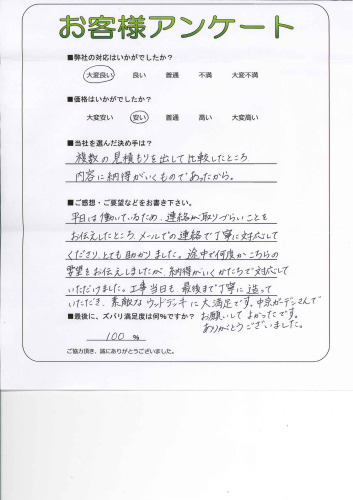 お客様アンケート
■弊社の対応はいかがでしたか？
大変良い 良い 普通 不満 大変不満
■価格はいかがでしたか？
大変安い 安い 普通 高い 大変高い
■当社を選んだ決め手は？
複数の見積もりを出して比較したところ
内容に納得がいくものであったから。
■ご感想・ご要望などをお書き下さい。
平日は働いているため、連絡が取りづらいことを
お伝えしたところ、メールでの連絡で丁寧に対応して
くださり、とても助かりました。途中で何度かこちらの
要望をお伝えしましたが、納得がいくかたちで対応して
いただけました。工事当日も、最後まで丁寧に造って
いただき、素敵なウッドデッキに大満足です。中京ガーデンさんで
■最後に、ズバリ満足度は何％ですか？ お願いしてよかったです。
ありがとうございました。
100 ％
ご協力頂き、誠にありがとうございました。